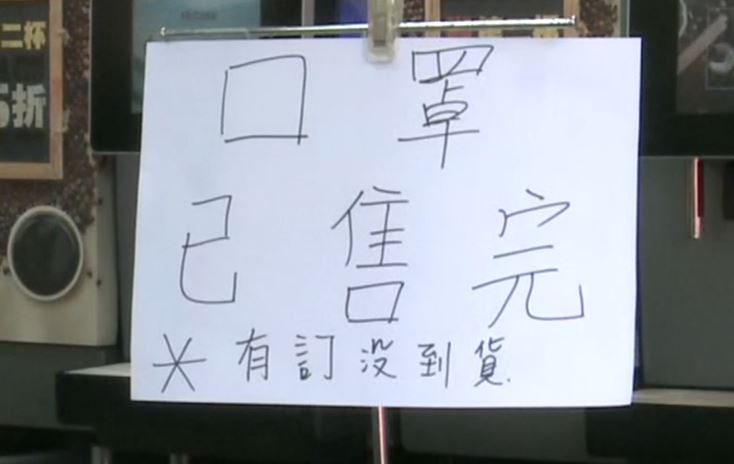 二杯
5折
口罩
已售完
*有訂没到貨.